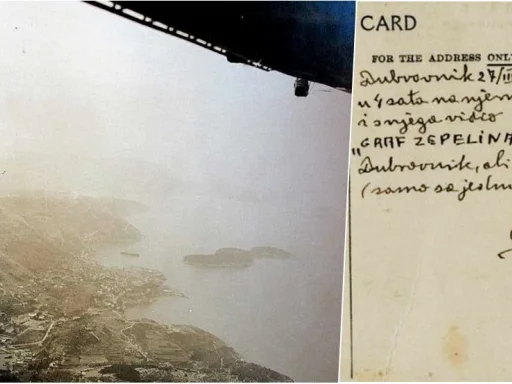 CARD
FOR THE ADDRESS ONL
Dubrovnik 27/III
u 4 sata na njem
i s njega video
"GRAF ZEPELINA
Dubrovnik, ali
(samo sa jedn